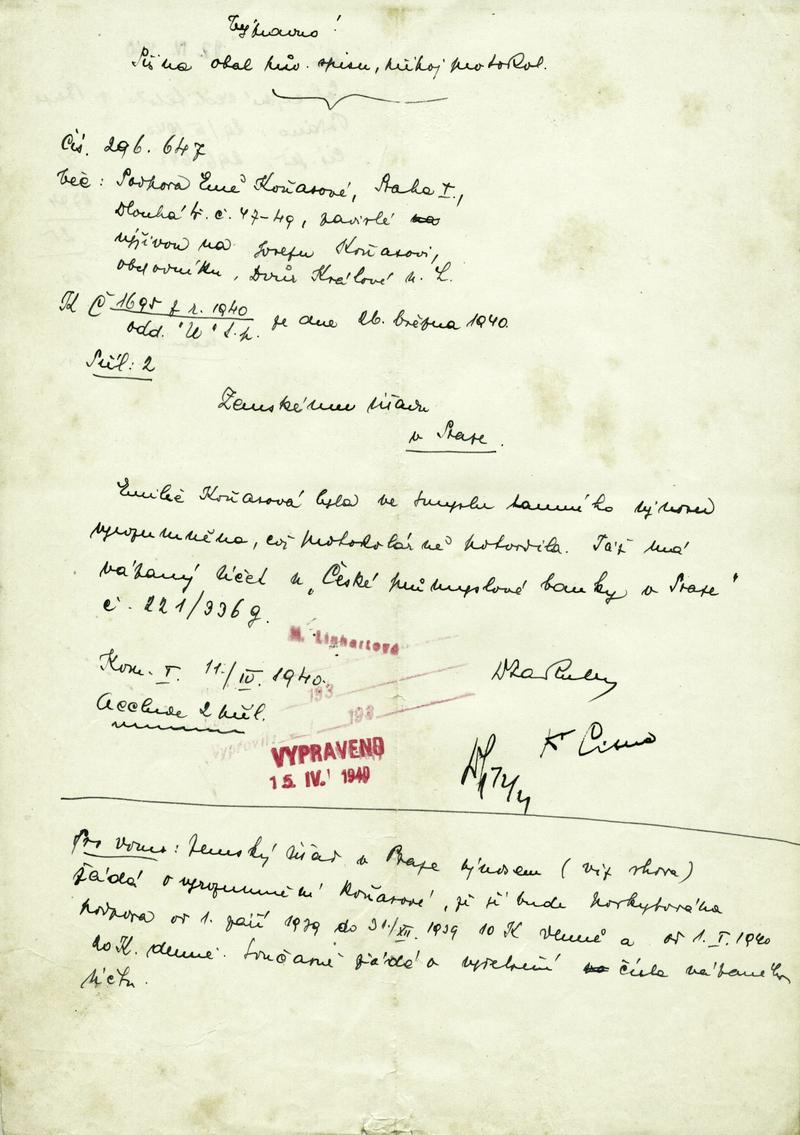 Píš na obal pův. spisu, nikoj protokol.
Čís. 296.647
Věc: Podpora Emě Koňasové, Praha I.,
Dlouhá tř. č. 47-49, závislé na
výživou na Josefu Koňasovi,
obchodníku, Dvůr Králové n. L.
K Č 1695 z r. 1940 ze dne 26. března 1940.
odd. "U" S.p.
Příl: 2
Zemskému úřadu
v Praze.
Emilie Koňasová byla ve smyslu tamního výnosu
vyrozuměna, což protokolárně potvrdila. Táž má
vázaný účet u "České průmyslové banky v Praze"
č. 221/3369.
M. Linhartová
Kom. I. 11./IV. 1940.
193
Acclude 2 příl.
193
Vypravil:
VYPRAVENO
15. IV. 1940
Pro domo: Zemský úřad v Praze výnosem (viz shora)
žádá o vyrozumění Koňasové, že jí bude poskytována
podpora od 1. září 1939 do 31./XII. 1939 10 K denně a od 1. I. 1940
20 K. denně. Současně žádá o vyřešení čísla vázaného
účtu.